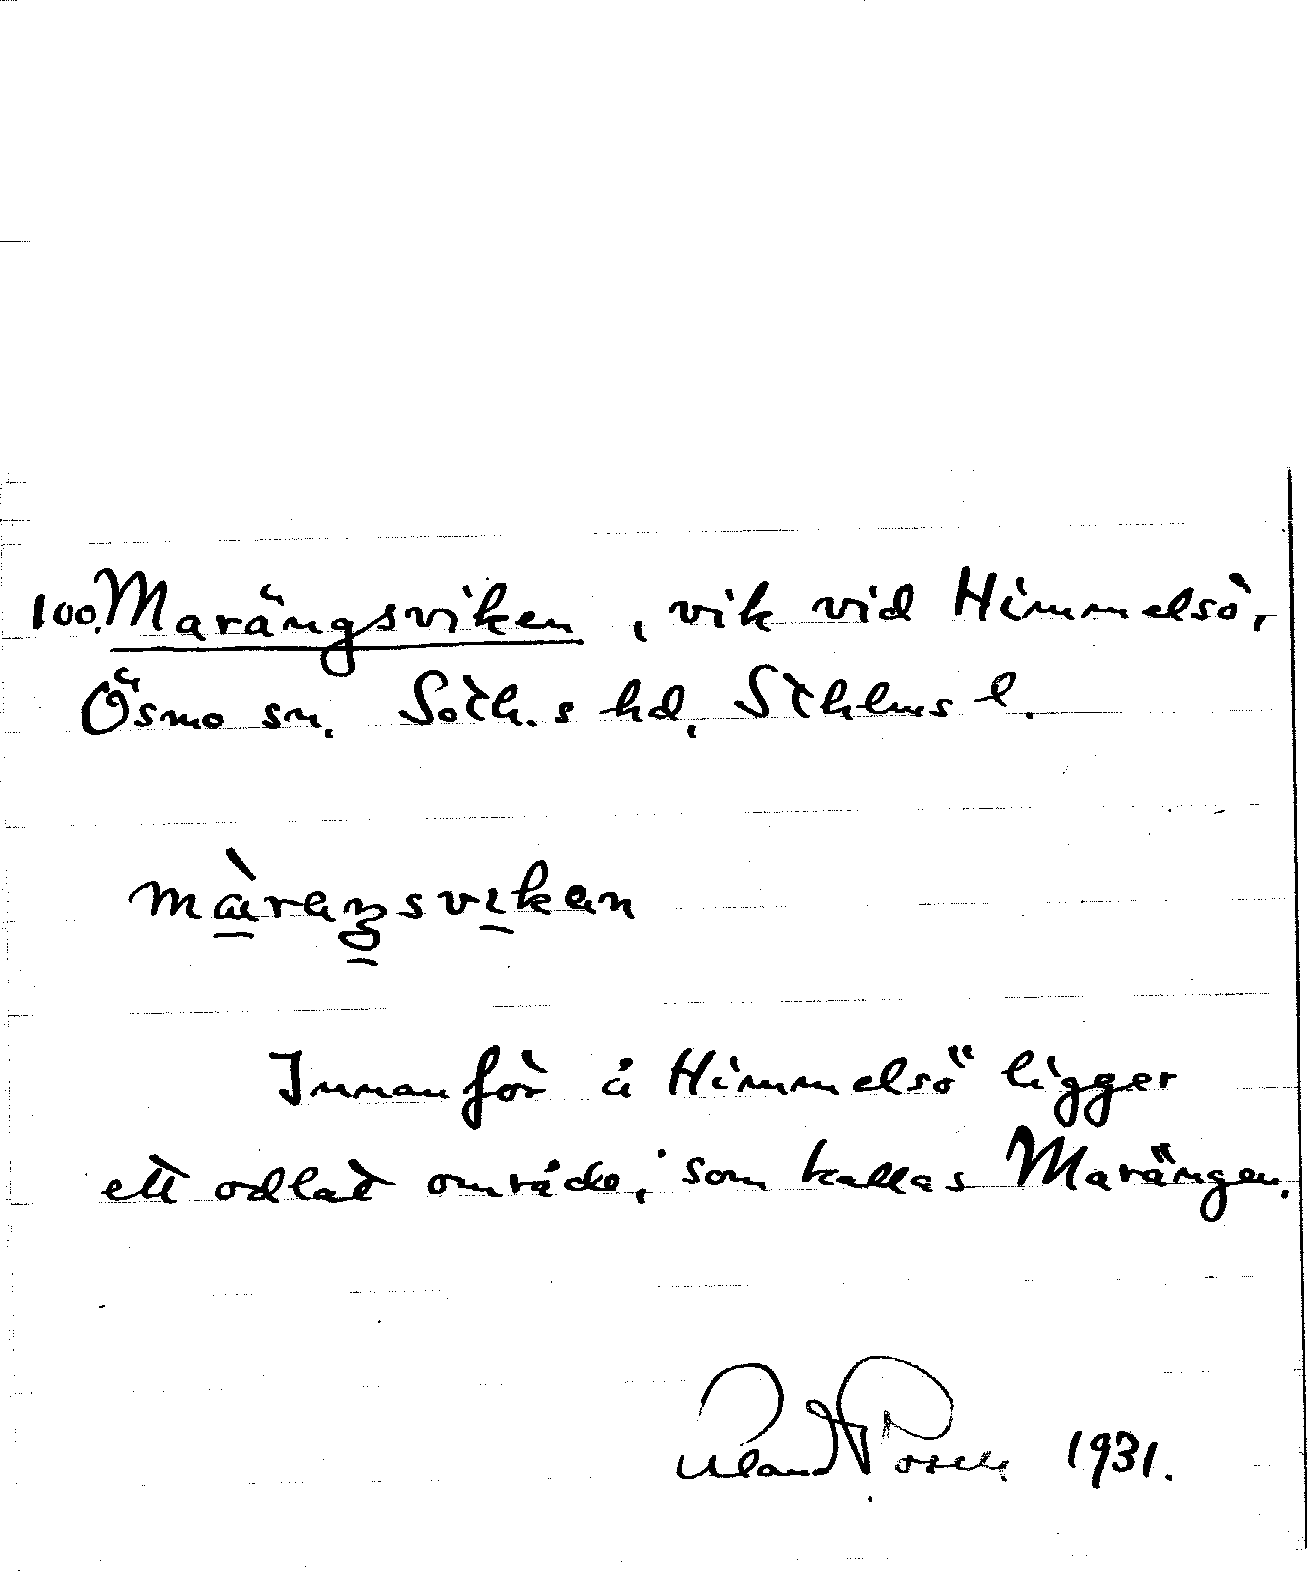 100. Marängsviken, vik vid Himmelsö,
Ösmo sn. Soth.s hd, Sthlms l.
Innanför å Himmelsö ligger
ett odlat område, som kallas Marängen.
1931.